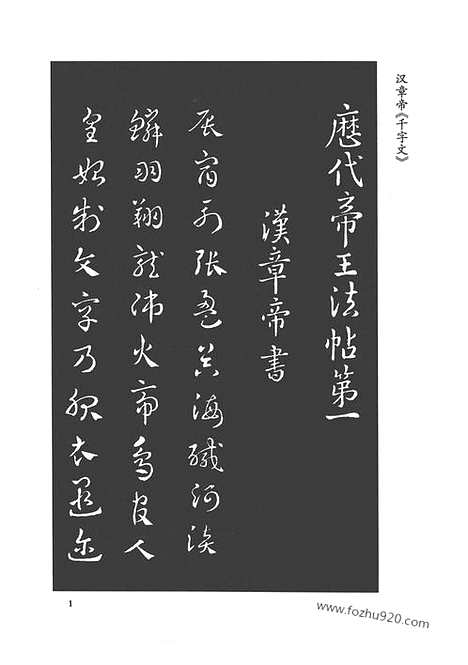 汉章帝《千字文》
歷代帝王法帖第一
漢章帝書
辰宿列張盈昃海鹹河淡
鱗羽翔龍師火帝鳥官人
皇始制文字乃服衣遐邇
1
www.fozhu920.com